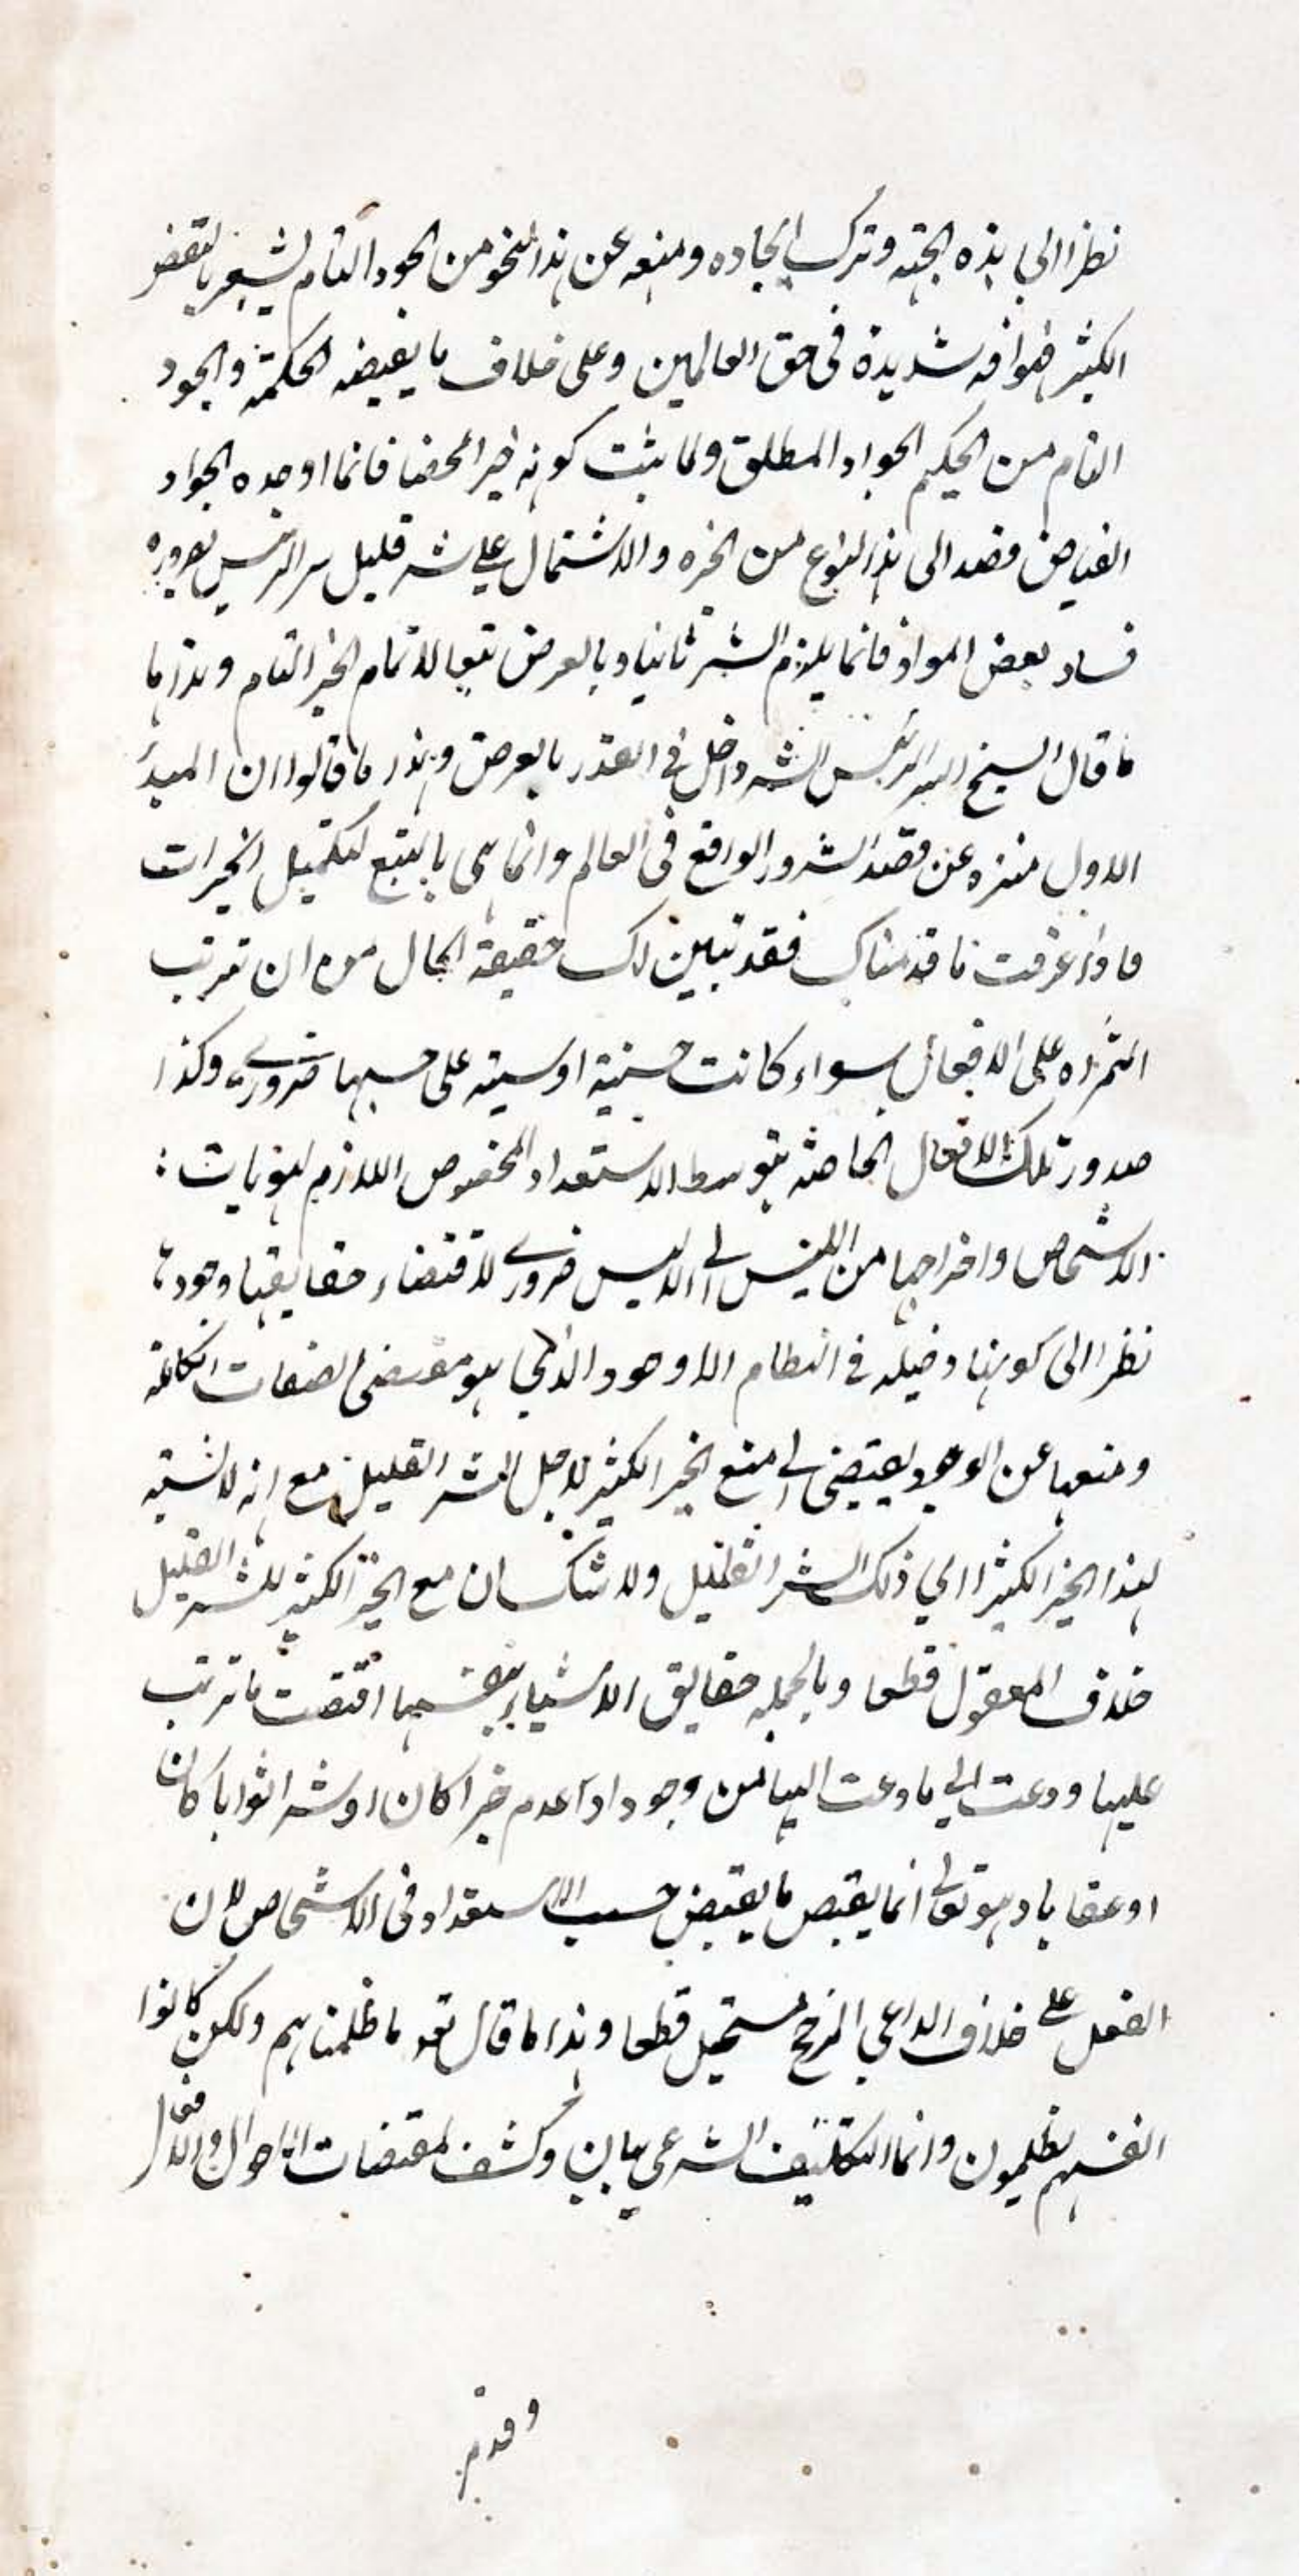 نظرا الى هذه الجهة وترك ايجاده ومنعه عن هذا النحو من الجود التام يشعر بالنقض
الكثير فهو افة شديدة فى حق العالمين وعلى خلاف ما يفيضه الحكمة والجود
التام من الحكيم الجواد المطلق ولما يثبت كونه خيرا محضا فانما اوجده الجواد
الفياض قصد الى هذا النوع من الخيره والاشتمال على شر قليل
فساد بعض المواد فانما يلزم الشر ثانيا وبالعرض تبعا لاتمام الخير التام وهذا ما
ما قال الشيخ الرئيس الشر داخل فى القدر بالعرض وهذا ما قالوا ان المبدئ
الاول منزه عن قصد الشرور الواقع فى العالم وانما هى بالتبع لتكميل الخيرات
فاذا عرفت ما قدمناك فقد تبين لك حقيقة الحال من ان ترتب
الثمراه على الافعال سواء كانت حسنية او سيئه على حسبها ضرورى وكذا
صدور تلك الافعال الخاصة بتوسط الاستعداد المخصوص اللازم لهويات
الاشخاص واخراجها من الليس الى الايس ضرورى لاقتضاء حقايقها وجودها
نظرا الى كونها دخيله فى النظام الاوجود الذى هو مقتضى الصفات الكاملة
ومنعها عن الوجود يقتضى الى منع الخير الكثير لاجل الشر القليل مع انه لا نسبة
لهذا الخير الكثير الى ذلك الشر القليل ولا شك ان مع الخير الكثير للشر القليل
خلاف المعقول قطعا وبالجمله حقايق الاشياء بنفسها اقتضت ما ترتب
عليها ودعت الى ما دعت اليها من وجود او عدم خيرا كان او شرا ثوابا كان
او عقابا وهو تعالى انما يفيض ما يفيض حسب الاستعداد فى الاشخاص لان
الفعل على خلاف الداعى المرجح مستحيل قطعا وهذا ما قال تعه ما ظلمناهم ولكن كانوا
انفسهم يظلمون وانما التكليف الشرعى بيان وكشف لمقتضات الاحوال والافعال
وقدم